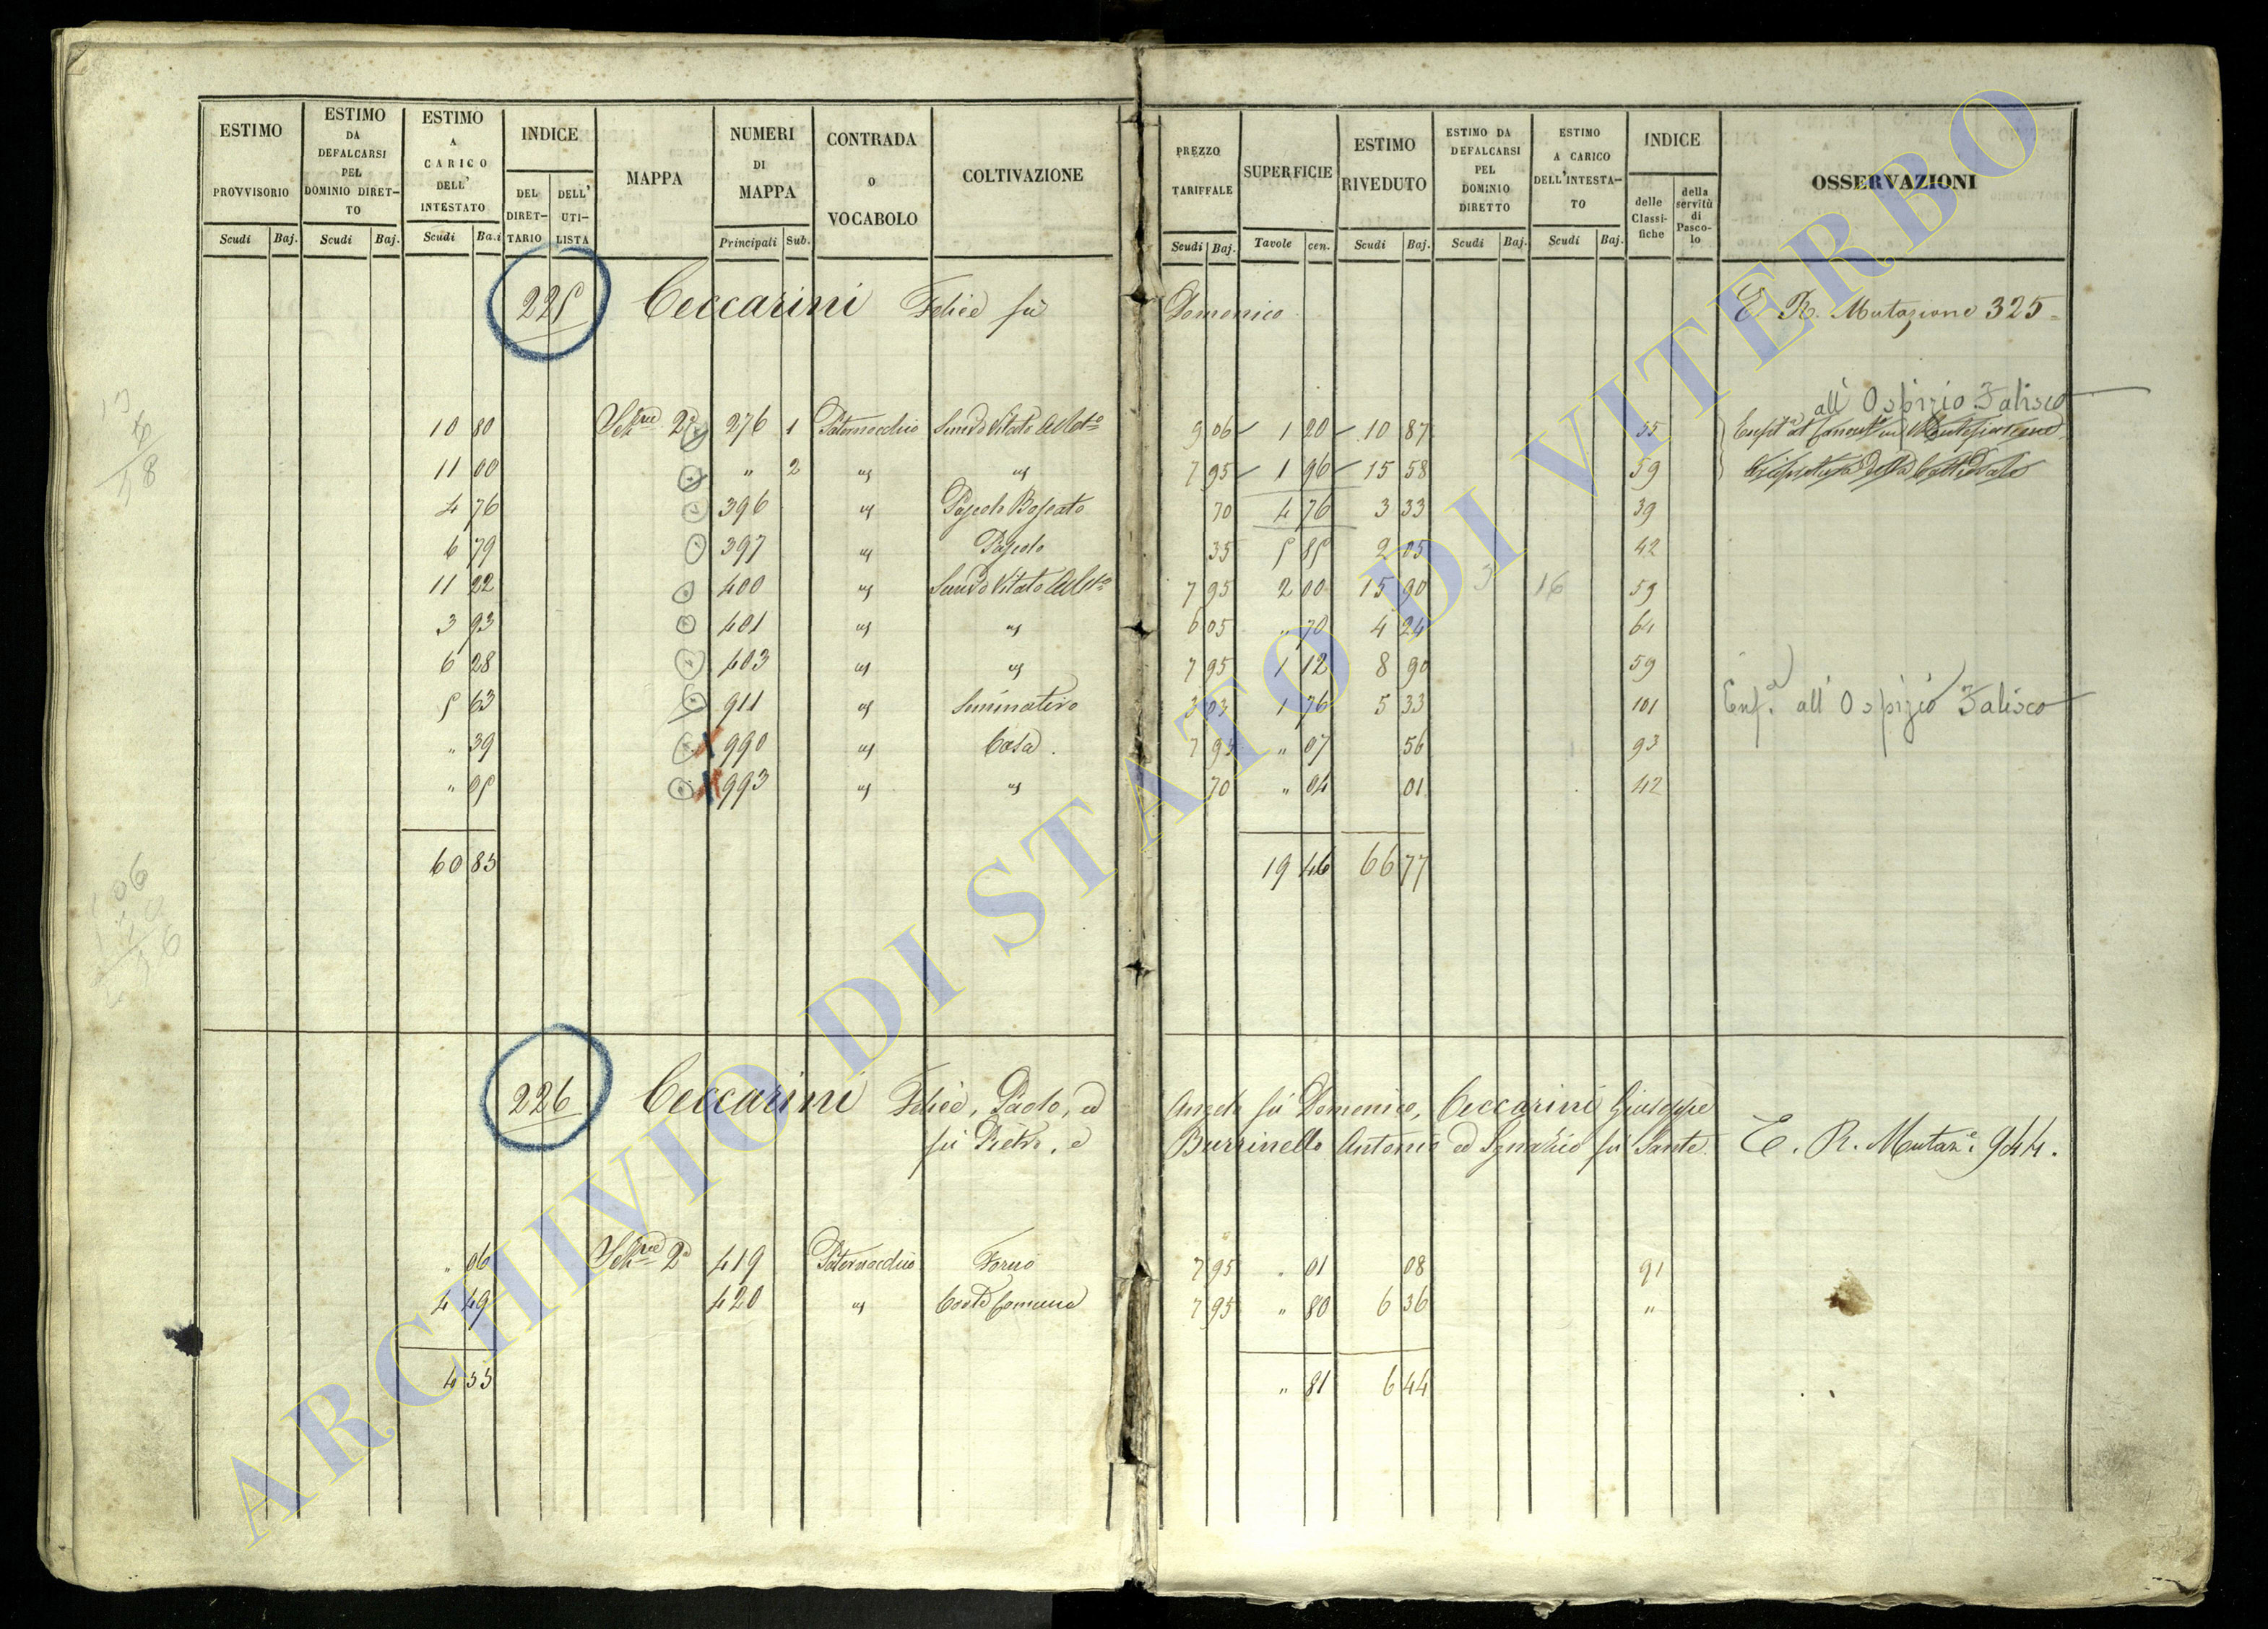 ESTIMO PROVVISORIO Scudi Baj.
ESTIMO DA DEFALCARSI PEL DOMINIO DIRETTO Scudi Baj.
ESTIMO A CARICO DELL' INTESTATO Scudi Ba.i
INDICE DEL DIRETTARIO DELL' UTILISTA
MAPPA
NUMERI DI MAPPA Principali Sub.
CONTRADA O VOCABOLO
COLTIVAZIONE
PREZZO TARIFFALE Scudi Baj.
SUPERFICIE Tavole cen.
ESTIMO RIVEDUTO Scudi Baj.
ESTIMO DA DEFALCARSI PEL DOMINIO DIRETTO Scudi Baj.
ESTIMO A CARICO DELL'INTESTATO Scudi Baj.
INDICE delle Classifiche della servitù di Pascolo
OSSERVAZIONI
225 Ceccarini Felice fù Domenico E R. Mutazione 325
all' Ospizio Falisco
10 80 2ª 276 1 9 06 1 20 10 87 55
11 00 " 2 " " 7 95 1 96 15 58 59
4 76 396 " Pascolo Boscato 70 4 76 3 33 39
6 79 397 " Pascolo 35 5 85 2 05 42
11 22 400 " 7 95 2 00 15 90 3 16 59
3 93 401 " " 6 05 " 70 4 24 61
6 28 403 " " 7 95 1 12 8 90 59
5 63 911 " Seminativo 3 03 1 76 5 33 101 Enf.ª all' Ospizio Falisco
" 39 990 " Casa 7 95 " 07 56 93
" 05 993 " " 70 " 04 01 42
60 85 19 46 66 77
226 Ceccarini Felice, Paolo, ed Angelo fù Domenico, Ceccarini Giuseppe
fù Pietro, e Burrinello Antonio ed Ignazio fù Sante E. R. Mutaz.e 944.
" 06 2ª 419 Forno 7 95 " 01 08 91
4 49 420 " Corte Comune 7 95 " 80 6 36 "
4 55 " 81 6 44
ARCHIVIO DI STATO DI VITERBO